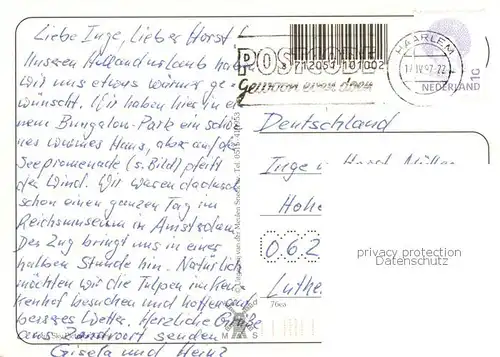 Liebe Inge, lieber Horst!
Unseren Hollandurlaub haben
wir uns etwas wärmer ge-
wünscht. Wir haben hier in ei-
nem Bungalow-Park ein schö-
nes warmes Haus, aber auf der
Seepromenade (s. Bild) pfeift
der Wind. Wir waren dadurch
schon einen ganzen Tag im
Reichsmuseum in Amsterdam.
Der Zug bringt uns in einer
halben Stunde hin. Natürlich
möchten wir die Tulpen im Keu-
kenhof besuchen und hoffen auf
besseres Wetter. Herzliche Grüße
aus Zantvoort senden
Gisela und Heinz
POSTCODE
Gewoon even doen
3712051 101002
HAARLEM
17 IV 97. 22
NEDERLAND
Deutschland
Inge u. Horst Müller
Hohe
062
Luthe
privacy protection
Datenschutz
76ea
M S